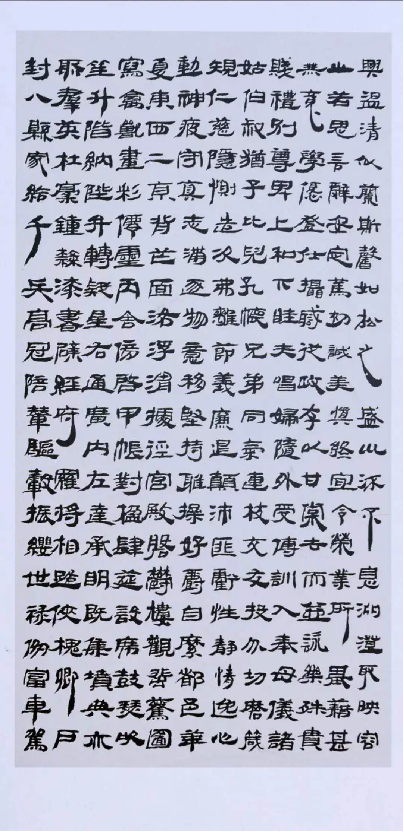 興溫清似蘭斯馨如松之盛川流不息淵澄取映容
止若思言辭安定篤初誠美慎終宜令榮業所基藉甚
無竟學優登仕攝職從政存以甘棠去而益詠樂殊貴
賤禮別尊卑上和下睦夫唱婦隨外受傅訓入奉母儀諸
姑伯叔猶子比兒孔懷兄弟同氣連枝交友投分切磨箴
規仁慈隱惻造次弗離節義廉退顛沛匪虧性靜情逸心
動神疲守真志滿逐物意移堅持雅操好爵自縻都邑華
夏東西二京背芒面洛浮渭據涇宮殿盤鬱樓觀飛驚圖
寫禽獸畫彩僊靈丙舍傍啓甲帳對楹肆筵設席鼓瑟吹
笙升階納陛弁轉疑星右通廣內左達承明既集墳典亦
聚羣英杜稾鍾隸漆書壁經府羅將相路俠槐卿戶
封八縣家給千兵高冠陪輦驅轂振纓世祿侈富車駕